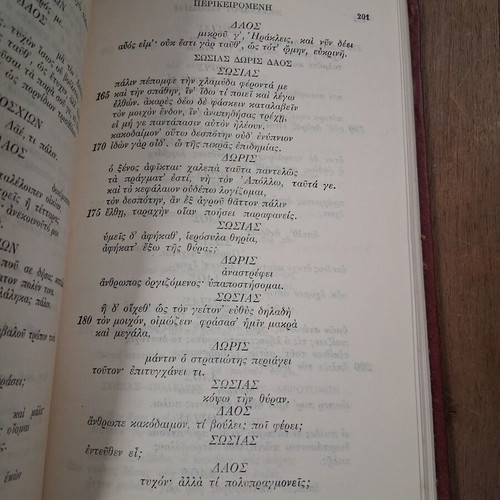 ΠΕΡΙΚΕΙΡΟΜΕΝΗ
201
ΔΑΟΣ
μικροῦ γ', Ἡράκλεις, καὶ νῦν δέει
αὐός εἰμ'· οὐκ ἔστι γὰρ ταῦθ', ὡς τότ' ᾤμην, εὐκρινῆ.
ΣΩΣΙΑΣ ΔΩΡΙΣ ΔΑΟΣ
ΣΩΣΙΑΣ
πάλιν πέπομφε τὴν χλαμύδα φέροντά με
165 καὶ τὴν σπάθην, ἵν' ἴδω τί ποιεῖ καὶ λέγω
ἐλθών. ἀκαρὲς δέω δὲ φάσκειν καταλαβεῖν
τὸν μοιχὸν ἔνδον, ἵν' ἀναπηδήσας τρέχῃ,
εἰ μή γε παντάπασιν αὐτὸν ἠλέουν.
κακοδαίμον' οὕτω δεσπότην οὐδ' ἐνύπνιον
170 ἰδὼν γὰρ οἶδ'. ὢ τῆς πικρᾶς ἐπιδημίας.
ΔΩΡΙΣ
ὁ ξένος ἀφῖκται· χαλεπὰ ταῦτα παντελῶς
τὰ πράγματ' ἐστί, νὴ τὸν Ἀπόλλω, ταῦτά γε.
καὶ τὸ κεφάλαιον οὐδέπω λογίζομαι,
τὸν δεσπότην, ἂν ἐξ ἀγροῦ θᾶττον πάλιν
175 ἔλθῃ, ταραχὴν οἵαν ποήσει παραφανείς.
ΣΩΣΙΑΣ
ὑμεῖς δ' ἀφήκαθ', ἱερόσυλα θηρία,
ἀφήκατ' ἔξω τῆς θύρας;
ΔΩΡΙΣ
ἀναστρέφει
ἄνθρωπος ὀργιζόμενος· ὑπαποστήσομαι.
ΣΩΣΙΑΣ
ἡ δ' οἴχεθ' ὡς τὸν γείτον' εὐθὺς δηλαδὴ
180 τὸν μοιχόν, οἰμώζειν φράσασ' ἡμῖν μακρὰ
καὶ μεγάλα.
ΔΩΡΙΣ
μάντιν ὁ στρατιώτης περιάγει
τοῦτον· ἐπιτυγχάνει τι.
ΣΩΣΙΑΣ
κόψω τὴν θύραν.
ΔΑΟΣ
ἄνθρωπε κακόδαιμον, τί βούλει; ποῖ φέρει;
ΣΩΣΙΑΣ
ἐντεῦθεν εἶ;
ΔΑΟΣ
τυχόν· ἀλλὰ τί πολυπραγμονεῖς;